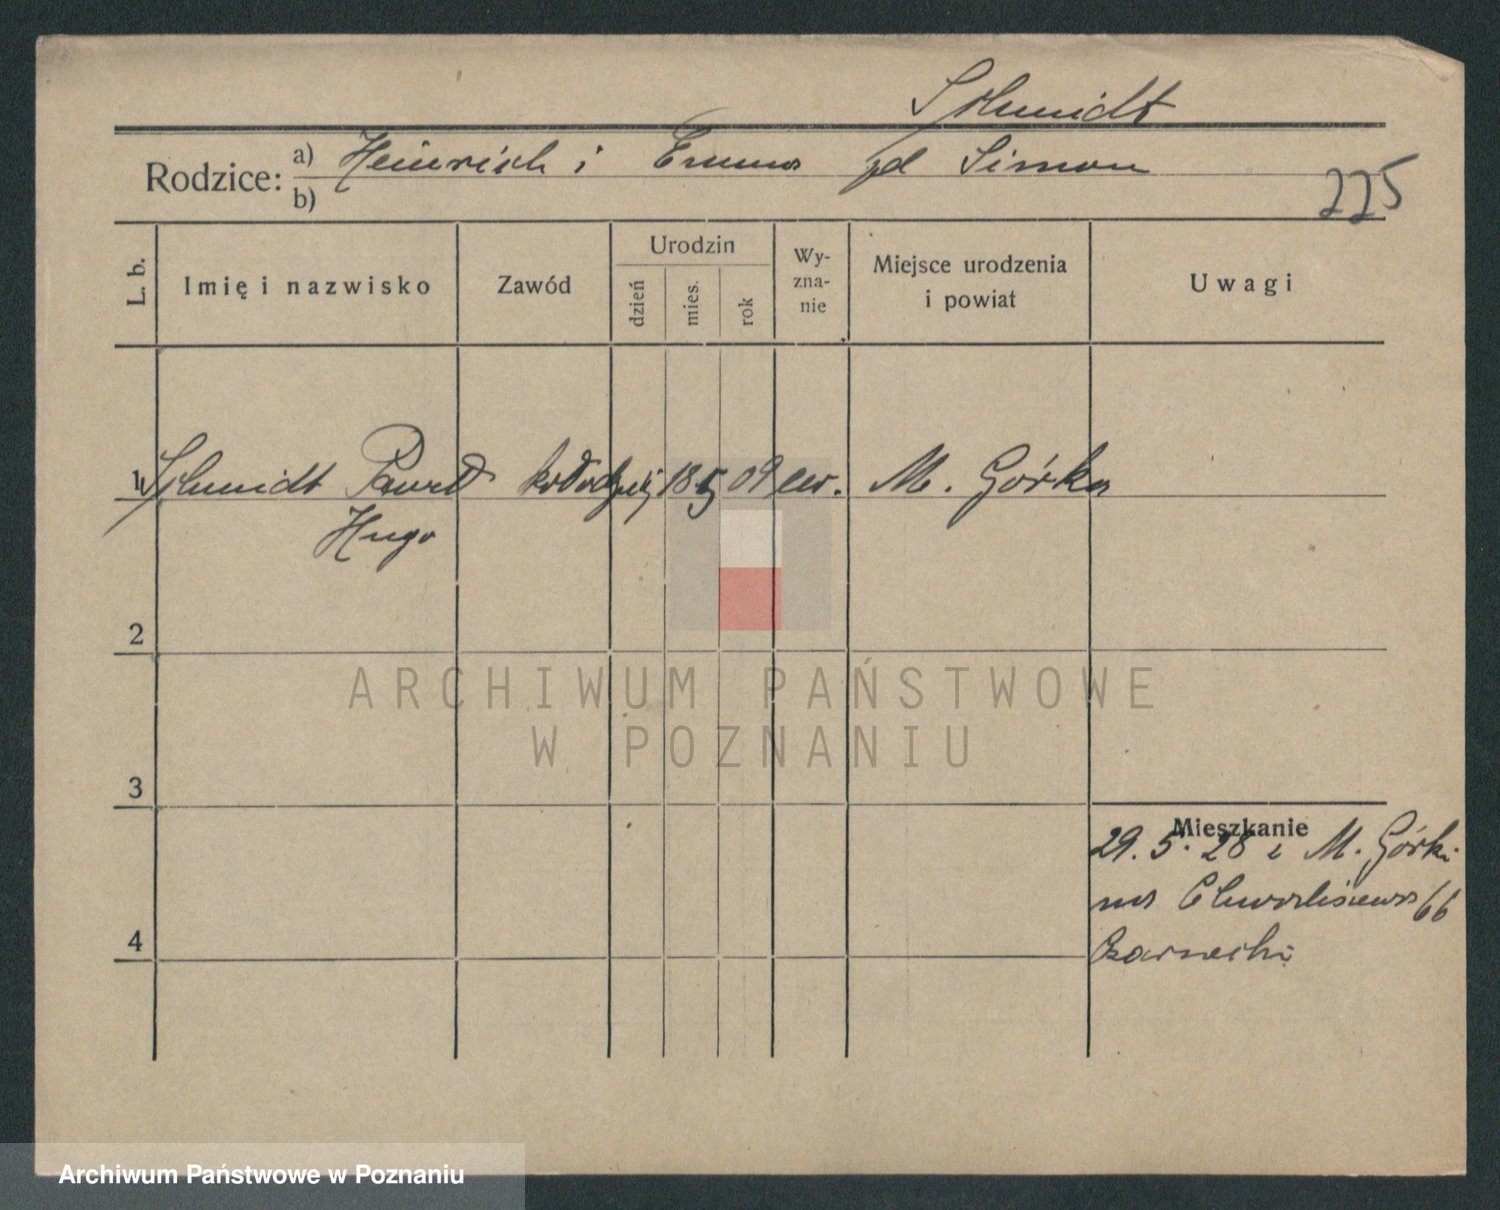 Schmidt
Rodzice: a) Heinrich i Emma zd Simon
b)
225
L. b.
Imię i nazwisko
Zawód
Urodzin
dzień
mies.
rok
Wy-
zna-
nie
Miejsce urodzenia
i powiat
Uwagi
1 Schmidt Paweł kołodziej 18 5 09 ew. M. Górka
Hugo
2
ARCHIWUM PAŃSTWOWE
W POZNANIU
3
Mieszkanie
29. 5. 28 z M. Górki
na Chwaliszewo 66
4
Czarnecki
Archiwum Państwowe w Poznaniu